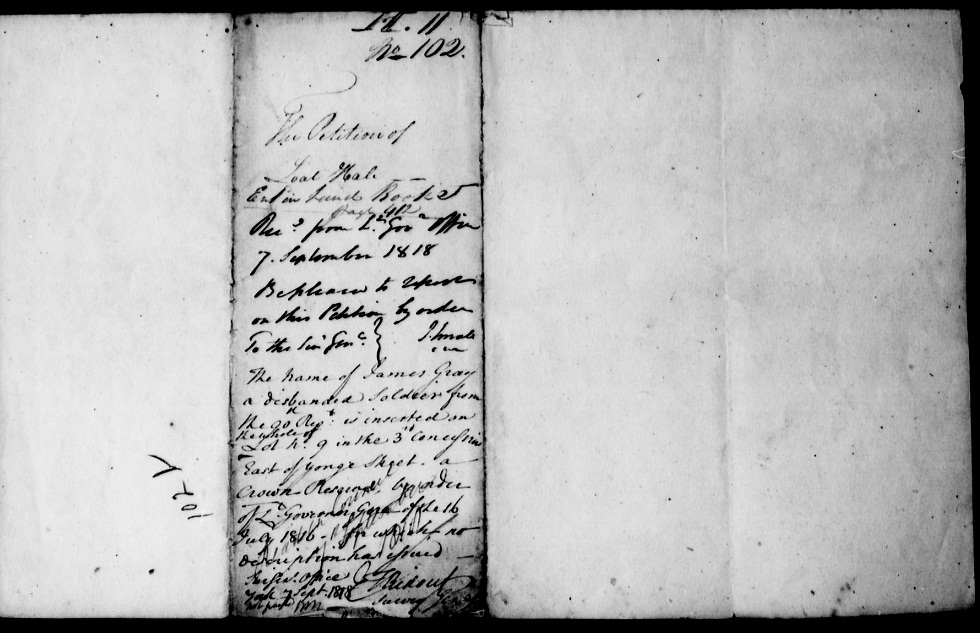 H. 11
No 102.
The Petition of
Hale
Ent in Land Book
page 412
Recd from Lt Govrs Office
7. September 1818
Be pleased to report
on this Petition by order
To the Sur Genl. }
The name of James Gray
a disbanded Soldier from
the 90th Regt is inserted on
the whole of
Lot No. 9 in the 3rd Concession
East of yonge Street. a
Crown Reserve, by order
of Lt Governor Gore of the 16
July 1816 - for which no
description has issued -
Surgs. Office
York 7 Sept. 1818
T Ridout
Survr Genl
102 V